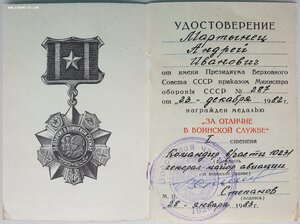 УДОСТОВЕРЕНИЕ
Мартынец
Андрей
Иванович
от имени Президиума Верховного
Совета СССР приказом Министра
обороны СССР № 287
от 22 декабря 1982 г.
награжден медалью
"ЗА ОТЛИЧИЕ
В ВОИНСКОЙ СЛУЖБЕ"
I степени
Командир в/части 10231
генерал-майор авиации
Степанов
28 января 1983 г.